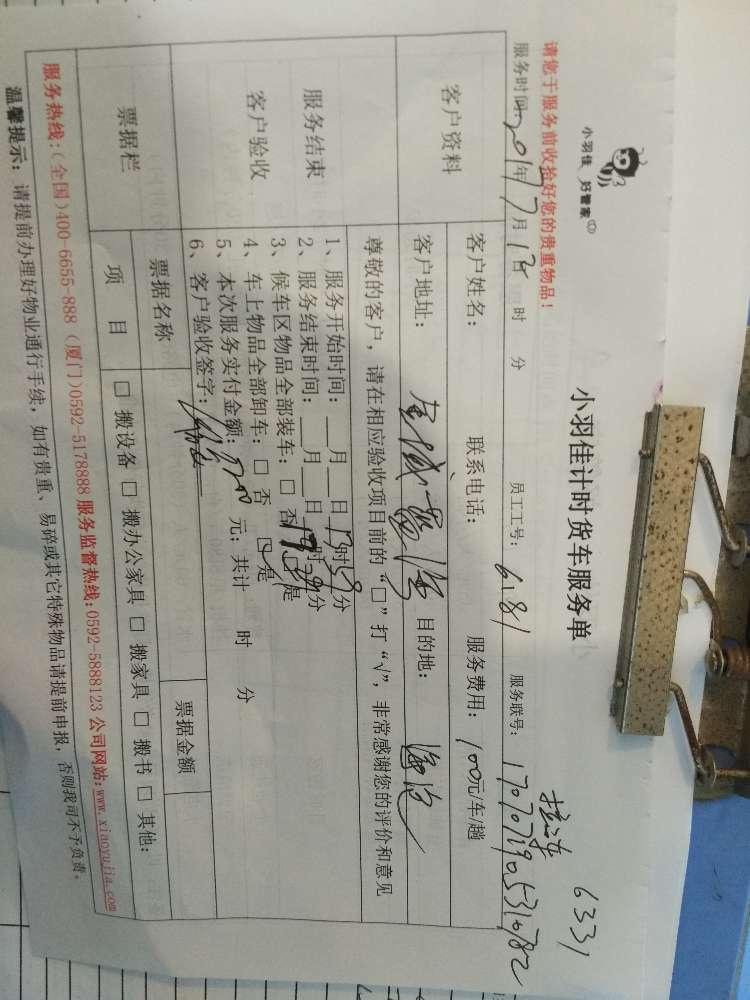 小羽佳 好管家
6331
小羽佳计时货车服务单
请您于服务前收捡好您的贵重物品!
服务时间: 201 年 7 月 13 日 时 分 员工工号: 6181 服务联号: 1707190531082
客户资料
客户姓名: 联系电话: 服务费用: 100元/车/趟
客户地址: 目的地:
服务结束
客户验收
尊敬的客户,请在相应验收项目前的“□”打“√”,非常感谢您的评价和意见
1、服务开始时间:__月__日13时59分
2、服务结束时间:__月__日17时39分
3、候车区物品全部装车:□ 否 是
4、车上物品全部卸车:□ 否 □ 是
5、本次服务实付金额: 元;共计 时 分
6、客户验收签字:
票据栏
票据名称 票据金额
项 目 □ 搬设备 □ 搬办公家具 □ 搬家具 □ 搬书 □ 其他:
服务热线:(全国)400-6655-888 (厦门)0592-5178888 服务监督热线:0592-5888123 公司网站:www.xiaoyujia.com
温馨提示:请提前办理好物业通行手续,如有贵重、易碎或其它特殊物品请提前申报,否则我司不予负责。